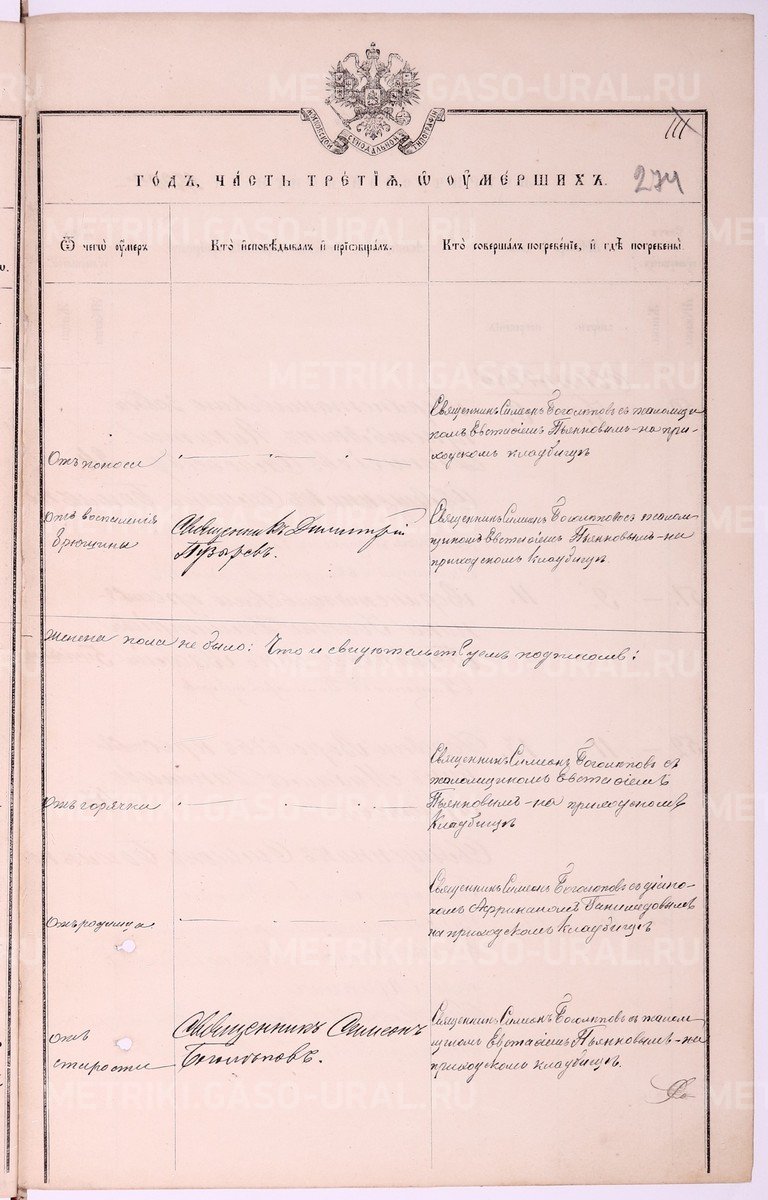 METRIKI.GASO-URAL.RU
МОСКОВСКОЙ СѴНОДАЛЬНОЙ ТИПОГРАФІИ
111
ГОДЪ, ЧАСТЬ ТРЕТІЯ, Ѿ ОУМЕРШИХЪ.
274
Ѿ чегѡ оумеръ
Кто исповѣдывалъ и пріобщалъ.
Кто совершалъ погребеніе, и гдѣ погребены.
Отъ поноса
Священникъ Симеонъ Боголѣповъ съ псаломщи
комъ Евстафіемъ Пьянковымъ - на при-
ходскомъ кладбищѣ
Отъ воспаленія
брюшины
Священникъ Димитрій
Пузыревъ.
Священникъ Симеонъ Боголѣповъ съ псалом
щикомъ Евстафіемъ Пьянковымъ - на
приходскомъ кладбищѣ.
женска пола не было: Что и свидѣтельствуемъ подписомъ:
Отъ горячки
Священникъ Симеонъ Боголѣповъ съ
псаломщикомъ Евстафіемъ
Пьянковымъ - на приходскомъ
кладбищѣ
Отъ родимца
Священникъ Симеонъ Боголѣповъ съ діако-
номъ на приходскомъ кладбищѣ
Отъ
старости
Священникъ Симеонъ
Боголѣповъ.
Священникъ Симеонъ Боголѣповъ съ псалом
щикомъ Евстафіемъ Пьянковымъ - на
приходскомъ кладбищѣ.